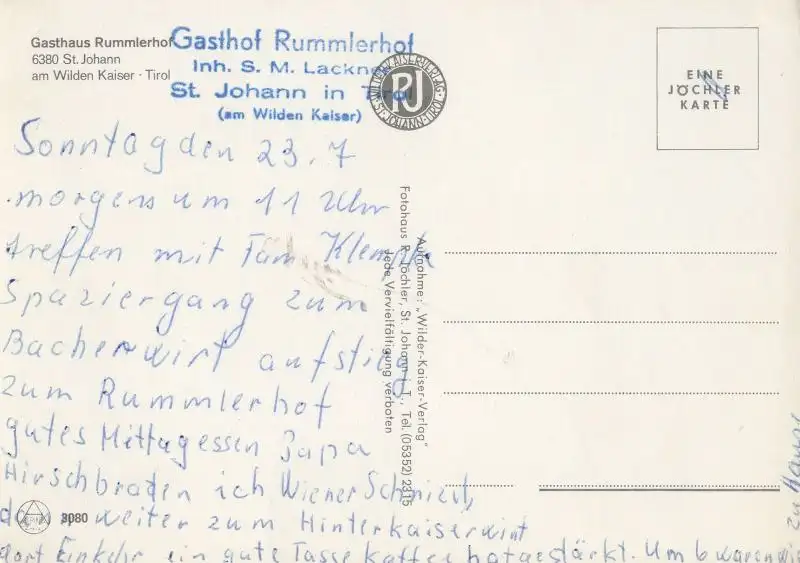 Gasthaus Rummlerhof
6380 St. Johann
am Wilden Kaiser - Tirol
Gasthof Rummlerhof
Inh. S. M. Lackner
St. Johann in Tirol
(am Wilden Kaiser)
WILDER-KAISER-VERLAG
RJ
ST. JOHANN-TIROL
EINE
JÖCHLER
KARTE
Sonntag den 23.7
morgens um 11 Uhr
treffen mit Fam
Spaziergang zum
Bacherwirt aufstieg
zum Rummlerhof
gutes Mittagessen Papa
Hirschbraden ich Wiener Schnizl,
dann weiter zum Hinterkaiserwirt
dort Einkehr ein gute Tasse Kaffee hat gestärkt. Um 6 waren wir
zu Hause
Aufnahme: „Wilder-Kaiser-Verlag"
Fotohaus R. Jöchler, St. Johann i. T., Tel. (05352) 2315
Jede Vervielfältigung verboten
3080